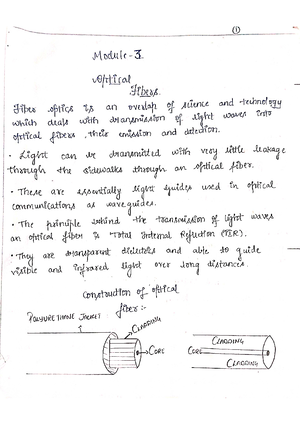 (1)
Module - 3.
Optical
Fibers.
Fiber optics is an overlap of science and technology
which deals with transmission of light waves into
optical fibers, their emission and detection.
• Light can be transmitted with very little leakage
through the sidewalks through an optical fiber.
• These are essentially light guides used in optical
communications as waveguides.
• The principle behind the transmission of light waves
an optical fiber is Total Internal Reflection (TIR).
• They are transparent dielectrics and able to guide
visible and infrared light over long distances.
Construction of optical
fiber:-
POLYURETHANE JACKET
CLADDING
CORE
CLADDING
CORE
CLADDING